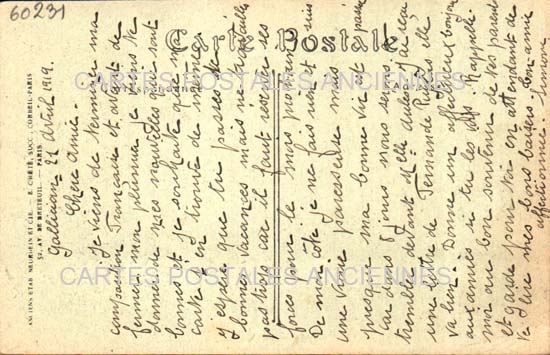 60231
Carte Postale
CARTES POSTALES ANCIENNES
CARTES POSTALES ANCIENNES
CARTES POSTALES ANCIENNES
ANCIENS ETAB. NEURDEIN ET CIE. — E. CRÉTÉ, SUCC., CORBEIL-PARIS
52, AV. DE BRETEUIL. — PARIS
21 Avril 1919.
Chère amie.
Je viens de terminer ma
composition Française et avant de
fermer mon plumier je viens te
donner mes nouvelles qui sont
bonnes et je souhaite que ma
carte t'en trouve de même.
J'espère que tu passes de
bonnes vacances mais ne travaille
pas trop car il faut réserver ses
forces pour le mois prochain.
De mon côté je ne fais rien et suis
une vraie paresseuse mais
presque ma bonne vie est passée
car dans 8 jours nous serons
trembler devant Melle J'ai reçu
une lettre de Fernande Puges elle
va bien. Donne un affectueux bonjour
aux amies si tu les vois. Rappelle
moi au bon souvenir de tes parents
et garde pour toi en attendant de
te lire mes bons baisers. Ton amie
affectionnée. Simone